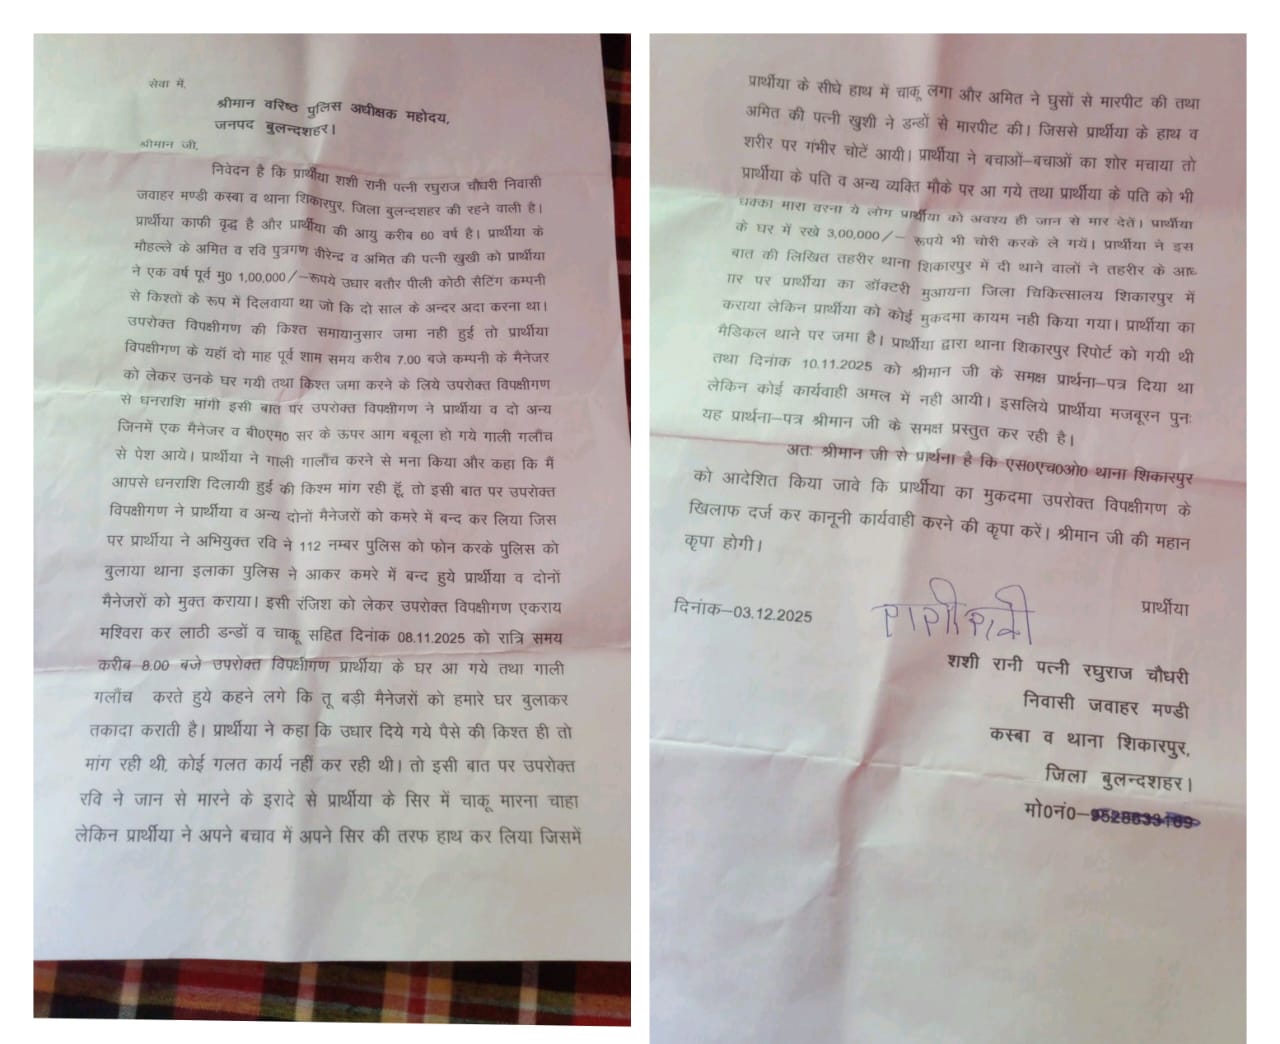 सेवा में,
श्रीमान वरिष्ठ पुलिस अधीक्षक महोदय,
जनपद बुलन्दशहर।
श्रीमान जी,
निवेदन है कि प्रार्थीया शशी रानी पत्नी रघुराज चौधरी निवासी
जवाहर मण्डी कस्बा व थाना शिकारपुर, जिला बुलन्दशहर की रहने वाली है।
प्रार्थीया काफी वृद्ध है और प्रार्थीया की आयु करीब 60 वर्ष है। प्रार्थीया के
मौहल्ले के अमित व रवि पुत्रगण वीरेन्द्र व अमित की पत्नी खुखी को प्रार्थीया
ने एक वर्ष पूर्व मु0 1,00,000/–रूपये उधार बतौर पीली कोठी सैटिंग कम्पनी
से किश्तों के रूप में दिलवाया था जो कि दो साल के अन्दर अदा करना था।
उपरोक्त विपक्षीगण की किश्त समायानुसार जमा नही हुई तो प्रार्थीया
विपक्षीगण के यहॉ दो माह पूर्व शाम समय करीब 7.00 बजे कम्पनी के मैनेजर
को लेकर उनके घर गयी तथा किश्त जमा करने के लिये उपरोक्त विपक्षीगण
से धनराशि मांगी इसी बात पर उपरोक्त विपक्षीगण ने प्रार्थीया व दो अन्य
जिनमें एक मैनेजर व बी0एम0 सर के ऊपर आग बबूला हो गये गाली गलौच
से पेश आये। प्रार्थीया ने गाली गालौच करने से मना किया और कहा कि मैं
आपसे धनराशि दिलायी हुई की किश्म मांग रही हूँ, तो इसी बात पर उपरोक्त
विपक्षीगण ने प्रार्थीया व अन्य दोनों मैनेजरों को कमरे में बन्द कर लिया जिस
पर प्रार्थीया ने अभियुक्त रवि ने 112 नम्बर पुलिस को फोन करके पुलिस को
बुलाया थाना इलाका पुलिस ने आकर कमरे में बन्द हुये प्रार्थीया व दोनों
मैनेजरों को मुक्त कराया। इसी रंजिश को लेकर उपरोक्त विपक्षीगण एकराय
मश्विरा कर लाठी डन्डों व चाकू सहित दिनांक 08.11.2025 को रात्रि समय
करीब 8.00 बजे उपरोक्त विपक्षीगण प्रार्थीया के घर आ गये तथा गाली
गलौच करते हुये कहने लगे कि तू बड़ी मैनेजरों को हमारे घर बुलाकर
तकादा कराती है। प्रार्थीया ने कहा कि उधार दिये गये पैसे की किश्त ही तो
मांग रही थी, कोई गलत कार्य नहीं कर रही थी। तो इसी बात पर उपरोक्त
रवि ने जान से मारने के इरादे से प्रार्थीया के सिर में चाकू मारना चाहा
लेकिन प्रार्थीया ने अपने बचाव में अपने सिर की तरफ हाथ कर लिया जिसमें
प्रार्थीया के सीघे हाथ में चाकू लगा और अमित ने घुसों से मारपीट की तथा
अमित की पत्नी खुशी ने डन्डों से मारपीट की। जिससे प्रार्थीया के हाथ व
शरीर पर गंभीर चोटें आयी। प्रार्थीया ने बचाओं–बचाओं का शोर मचाया तो
प्रार्थीया के पति व अन्य व्यक्ति मौके पर आ गये तथा प्रार्थीया के पति को भी
धक्का मारा वरना ये लोग प्रार्थीया को अवश्य ही जान से मार देतें। प्रार्थीया
के घर में रखे 3,00,000/– रूपये भी चोरी करके ले गयें। प्रार्थीया ने इस
बात की लिखित तहरीर थाना शिकारपुर में दी थाने वालों ने तहरीर के आध
ार पर प्रार्थीया का डॉक्टरी मुआयना जिला चिकित्सालय शिकारपुर में
कराया लेकिन प्रार्थीया को कोई मुकदमा कायम नही किया गया। प्रार्थीया का
मैडिकल थाने पर जमा है। प्रार्थीया द्वारा थाना शिकारपुर रिपोर्ट को गयी थी
तथा दिनांक 10.11.2025 को श्रीमान जी के समक्ष प्रार्थना–पत्र दिया था
लेकिन कोई कार्यवाही अमल में नही आयी। इसलिये प्रार्थीया मजबूरन पुनः
यह प्रार्थना–पत्र श्रीमान जी के समक्ष प्रस्तुत कर रही है।
अतः श्रीमान जी से प्रार्थना है कि एस0एच0ओ0 थाना शिकारपुर
को आदेशित किया जावे कि प्रार्थीया का मुकदमा उपरोक्त विपक्षीगण के
खिलाफ दर्ज कर कानूनी कार्यवाही करने की कृपा करें। श्रीमान जी की महान
कृपा होगी।
दिनांक–03.12.2025 प्रार्थीया
शशी रानी पत्नी रघुराज चौधरी
निवासी जवाहर मण्डी
कस्बा व थाना शिकारपुर,
जिला बुलन्दशहर।
मो0नं0–